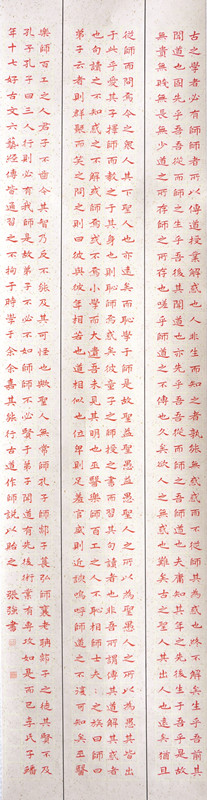 古之學者必有師師者所以傳道授業解惑也人非生而知之者孰能無惑惑而不從師其為惑也終不解矣生乎吾前其
聞道也固先乎吾吾從而師之生乎吾後其聞道也亦先乎吾吾從而師之吾師道也夫庸知其年之先後生于吾乎是故
無貴無賤無長無少道之所存師之所存也嗟乎師道之不傳也久矣欲人之無惑也難矣古之聖人其出人也遠矣猶且
從師而問焉今之衆人其下聖人也亦遠矣而恥學于師是故聖益聖愚益愚聖人之所以為聖愚人之所以為愚其皆出
于此乎愛其子擇師而教之于其身也則恥師焉惑矣彼童子之師授之書而習其句讀者也非吾所謂傳其道解其惑者
也句讀之不知惑之不解或師焉或不焉小學而大遺吾未見其明也巫醫樂師百工之人不恥相師士大夫之族曰師曰
弟子云者則群聚而笑之問之則曰彼與彼年相若也道相似也位卑則足羞官盛則近諛嗚呼師道之不復可知矣巫醫
樂師百工之人君子不齒今其智乃反不能及其可怪也歟聖人無常師孔子師郯子萇弘師襄老聃郯子之徒其賢不及
孔子孔子曰三人行則必有我師是故弟子不必不如師師不必賢于弟子聞道有先後術業有專攻如是而已李氏子蟠
年十七好古文六藝經傳皆通習之不拘于時學于余余嘉其能行古道作師說以貽之 張強書